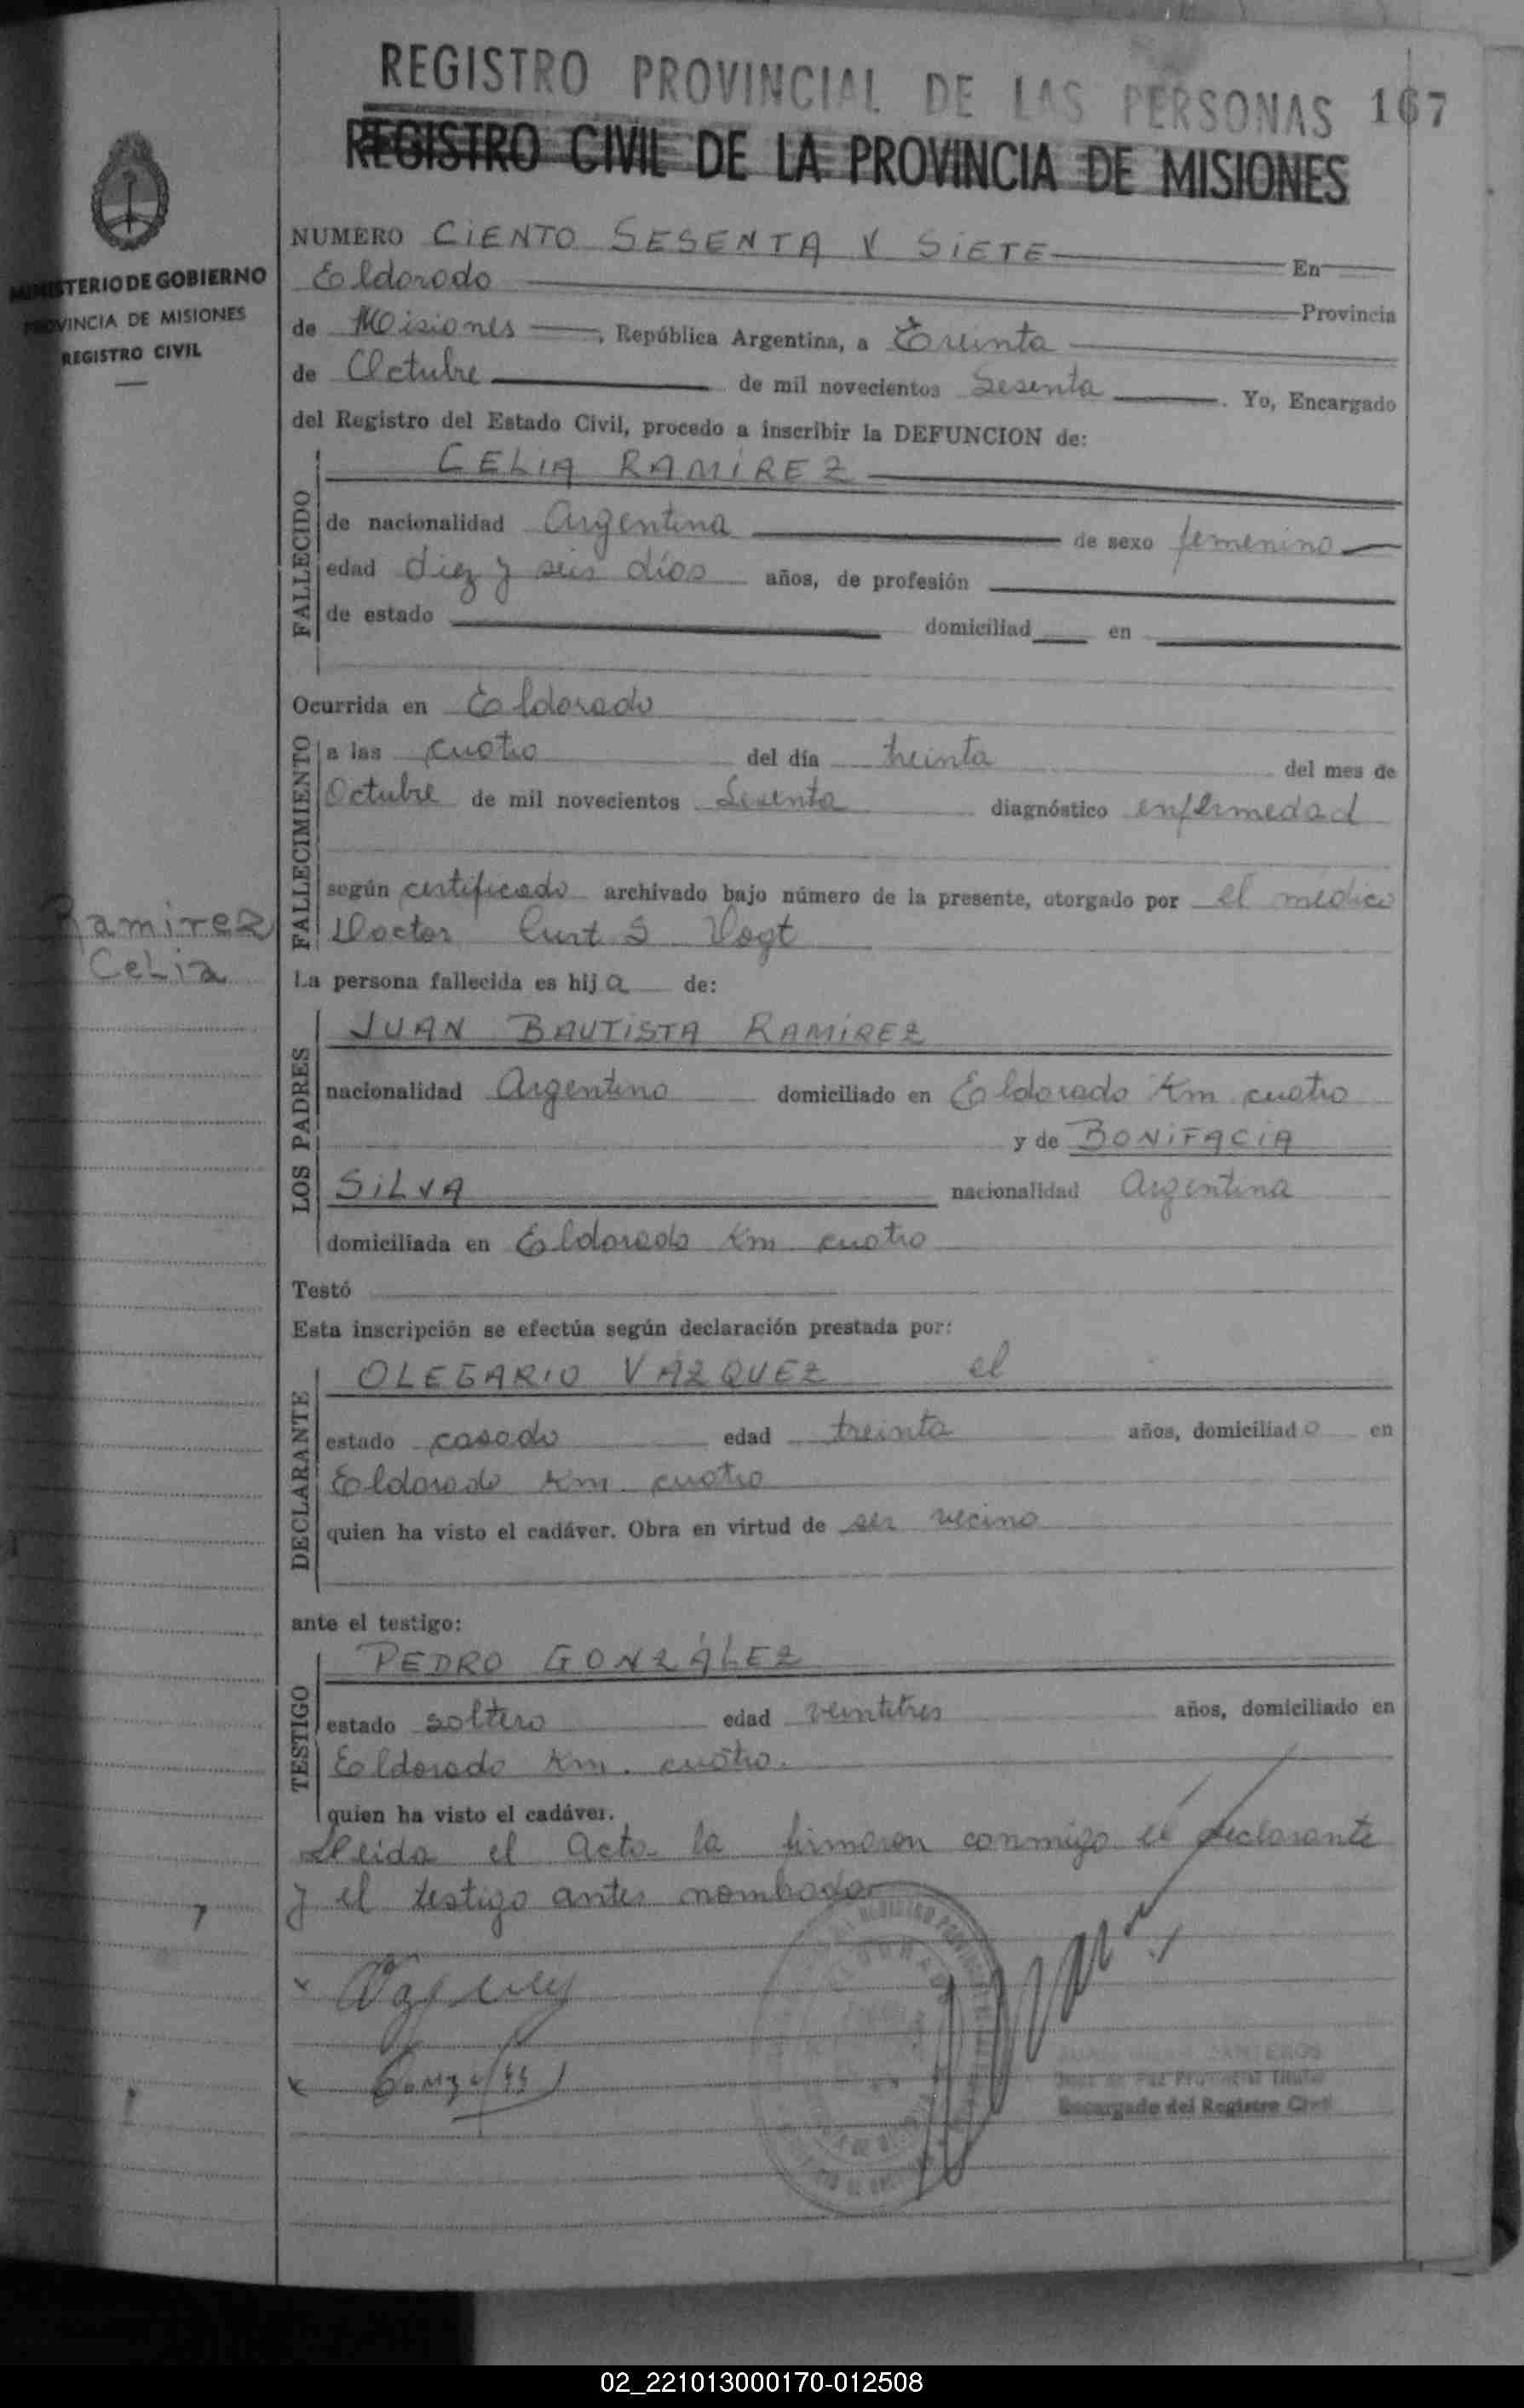 REGISTRO PROVINCIAL DE LAS PERSONAS 167
REGISTRO CIVIL DE LA PROVINCIA DE MISIONES
MINISTERIO DE GOBIERNO
PROVINCIA DE MISIONES
REGISTRO CIVIL
NUMERO CIENTO SESENTA Y SIETE En
Eldorado Provincia
de Misiones, República Argentina, a Treinta
de Octubre de mil novecientos Sesenta. Yo, Encargado
del Registro del Estado Civil, procedo a inscribir la DEFUNCION de:
CELIA RAMÍREZ
FALLECIDO
de nacionalidad Argentina de sexo femenino
edad diez y seis días años, de profesión
de estado domiciliad en
Ocurrida en Eldorado
FALLECIMIENTO
a las cuatro del día treinta del mes de
Octubre de mil novecientos Sesenta diagnóstico enfermedad
según certificado archivado bajo número de la presente, otorgado por el médico
Doctor Curt S Vogt
Ramirez
Celia
La persona fallecida es hija de:
LOS PADRES
JUAN BAUTISTA RAMÍREZ
nacionalidad Argentino domiciliado en Eldorado Km cuatro
y de BONIFACIA
SILVA nacionalidad Argentina
domiciliada en Eldorado Km cuatro
Testó
Esta inscripción se efectúa según declaración prestada por:
DECLARANTE
OLEGARIO VAZQUEZ el
estado casado edad treinta años, domiciliado en
Eldorado Km. cuatro
quien ha visto el cadáver. Obra en virtud de ser vecino
ante el testigo:
TESTIGO
PEDRO GONZÁLEZ
estado soltero edad veintitres años, domiciliado en
Eldorado Km. cuatro.
quien ha visto el cadáver.
Leida el acta la firmaron conmigo el declarante
y el testigo antes nombrado
Encargado del Registro Civil
02_221013000170-012508